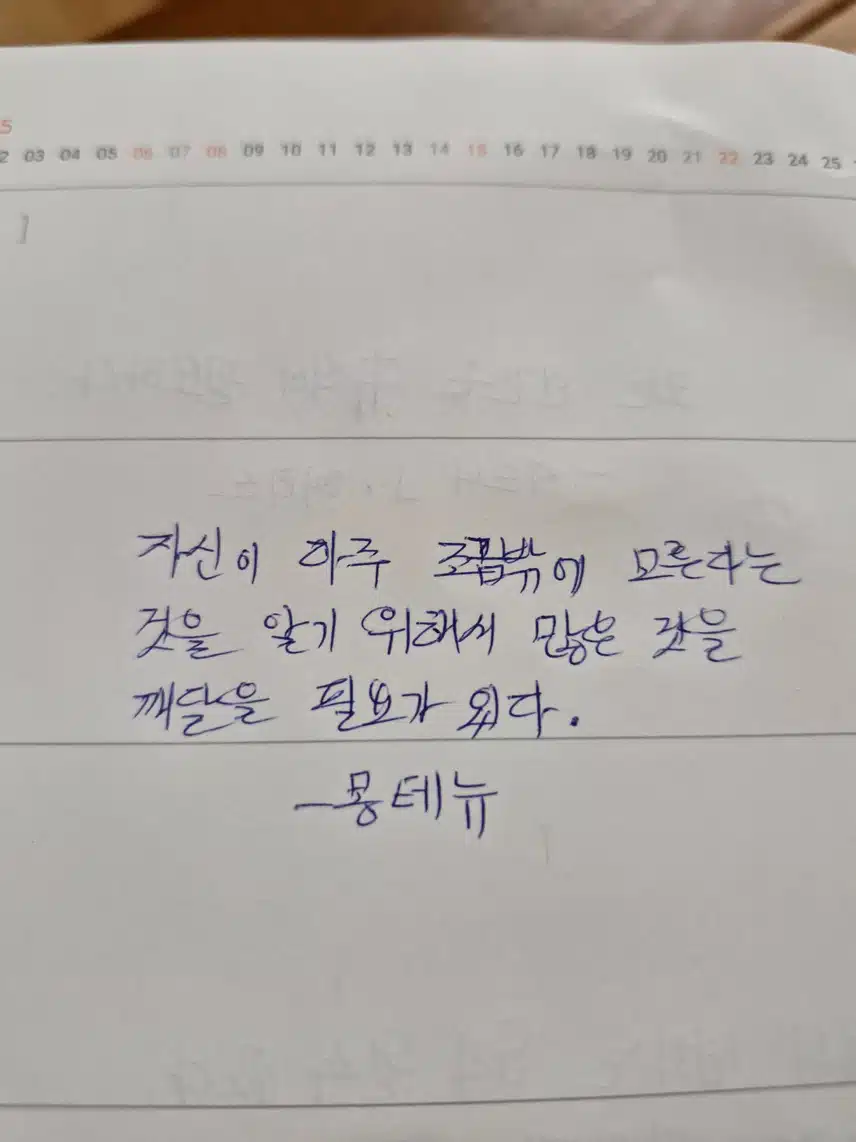 5
2 03 04 05 06 07 08 09 10 11 12 13 14 15 16 17 18 19 20 21 22 23 24 25
자신이 아주 조금밖에 모른다는
것을 알기 위해서 많은 것을
깨달을 필요가 있다.
-몽테뉴